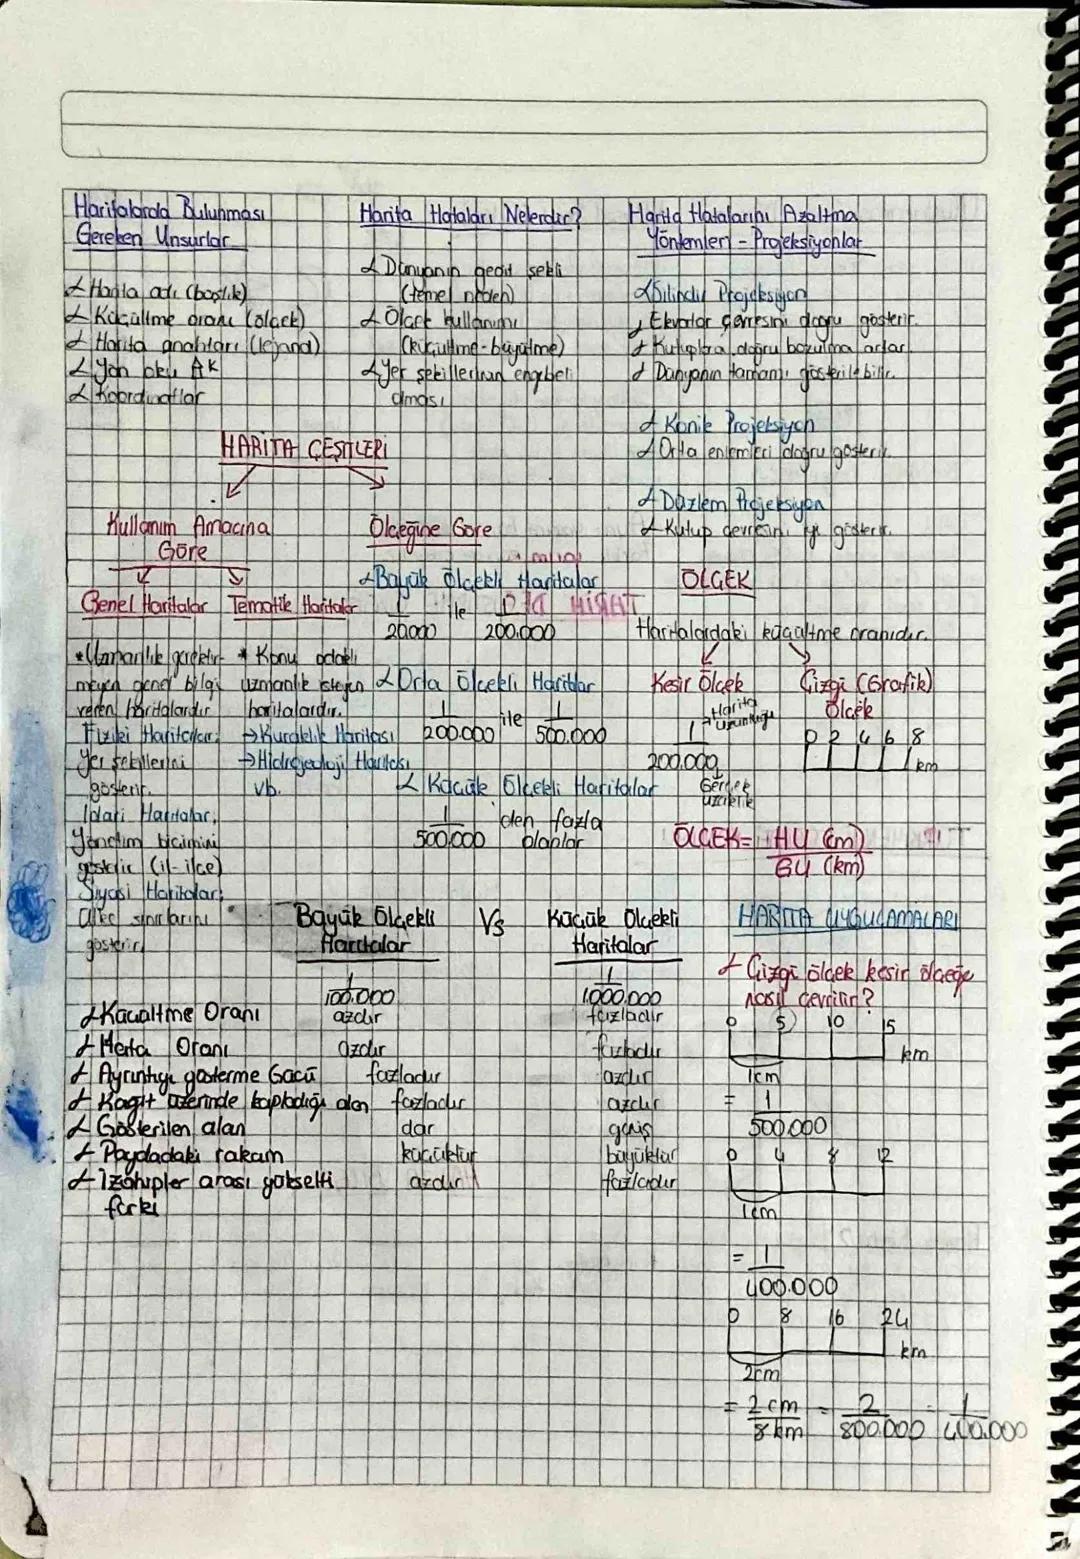 Haritalarda Bulunması
Gereken Unsurlar
Harita adı (başlık)
Küçültme oranı (ölçek)
Harita anahtarı (lejand)
Yön oku
Koordinatlar
Harita Hataları Nelerdir?
Dünyanın geoit şekli
(temel neden)
Ölçek kullanımı
(küçültme-büyütme)
Yer şekillerinin engebeli
olması
Harita Hatalarını Azaltma
Yöntemleri - Projeksiyonlar
Silindir Projeksiyon
Ekvator çevresini doğru gösterir.
Kutuplara doğru bozulma artar.
Dünyanın tamamı gösterilebilir.
Konik Projeksiyon
Orta enlemleri doğru gösterir.
Düzlem Projeksiyon
Kutup çevresini iyi gösterir.
HARİTA ÇEŞİTLERİ
Kullanım Amacına
Göre
Genel Haritalar
*Uzmanlık gerektir-
meyen genel bilgi
veren haritalardır
Fiziki Haritalar:
Yer şekillerini
gösterir.
İdari Haritalar:
Yönetim biçimini
gösterir (il-ilçe)
Siyasi Haritalar:
ülke sınırlarını
gösterir.
Tematik Haritalar
* Konu odaklı
uzmanlık isteyen
haritalardır.
→Kuraklık Haritası
→Hidrojeoloji Haritası
vb.
Ölçeğine Göre
Büyük Ölçekli Haritalar
1/20.000 ile 1/200.000
Orta Ölçekli Haritalar
1/200.000 ile 1/500.000
Küçük Ölçekli Haritalar
1/500.000 den fazla
olanlar
ÖLÇEK
Haritalardaki küçültme oranıdır.
Kesir Ölçek
Harita
Uzunluğu
1/200.000
Gerçek
uzunluk
Çizgi (Grafik)
Ölçek
0 2 4 6 8
km
ÖLÇEK= HU (cm)
GU (km)
Büyük Ölçekli Vs Küçük Ölçekli
Haritalar Haritalar
1/100.000 1/1.000.000
Küçültme Oranı azdır fazladır
Hata Oranı azdır fazladır
Ayrıntıyı gösterme Gücü fazladır azdır
Kağıt üzerinde kapladığı alan fazladır azdır
Gösterilen alan dar geniş
Paydadaki rakam küçüktür büyüktür
İzohipler arası yükselti azdır fazladır
farkı
HARİTA UYGULAMALARI
Çizgi ölçek kesir ölçeğe
nasıl çevrilir?
0 5 10 15
km
1cm
= 1/500.000
0 4 8 12
1cm
= 1/400.000
0 8 16 24
km
2cm
= 2 cm/8 km = 2/800.000 = 1/400.000